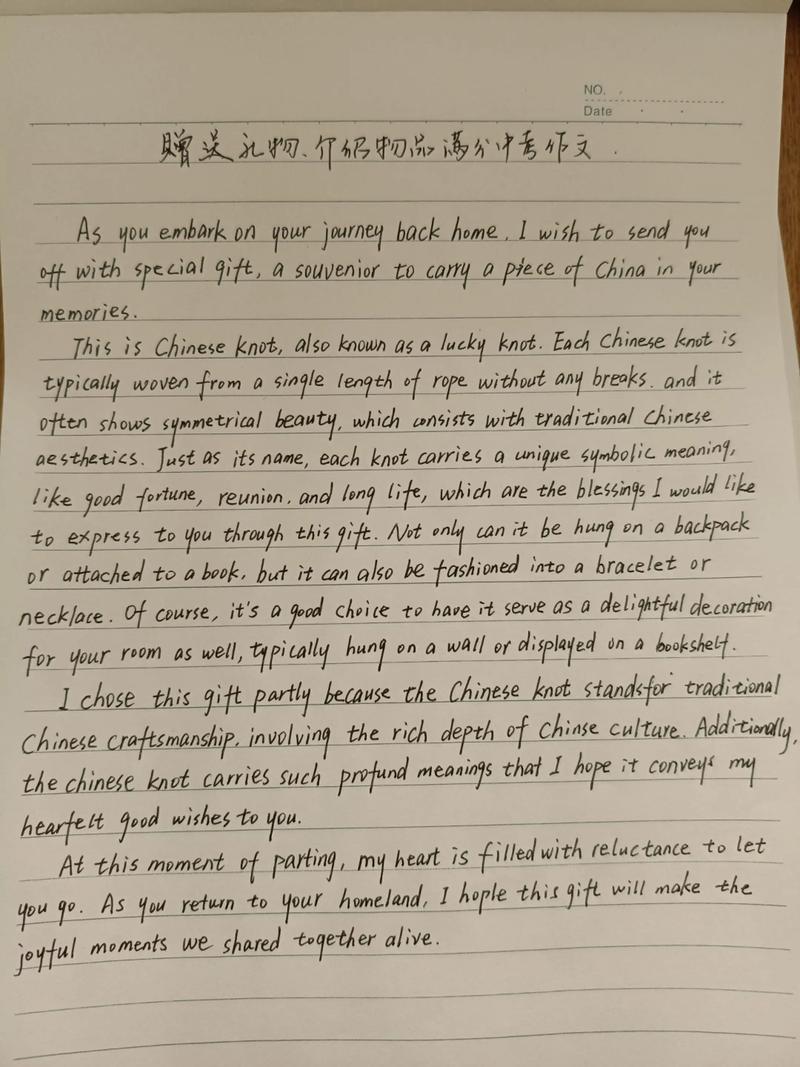 NO.
Date
赠送礼物、介绍物品满分中考作文.
As you embark on your journey back home, I wish to send you
off with special gift, a souvenior to carry a piece of China in your
memories.
This is Chinese knot, also known as a lucky knot. Each Chinese knot is
typically woven from a single length of rope without any breaks. and it
often shows symmetrical beauty, which consists with traditional Chinese
aesthetics. Just as its name, each knot carries a unique symbolic meaning,
like good fortune, reunion, and long life, which are the blessings I would like
to express to you through this gift. Not only can it be hung on a backpack
or attached to a book, but it can also be fashioned into a bracelet or
necklace. Of course, it's a good choice to have it serve as a delightful decoration
for your room as well, typically hung on a wall or displayed on a bookshelf.
I chose this gift partly because the Chinese knot stands for traditional
Chinese craftsmanship, involving the rich depth of Chinse culture. Additionally,
the chinese knot carries such profund meanings that I hope it conveys my
hearfelt good wishes to you.
At this moment of parting, my heart is filled with reluctance to let
you go. As you return to your homeland, I hople this gift will make the
joyful moments we shared together alive.